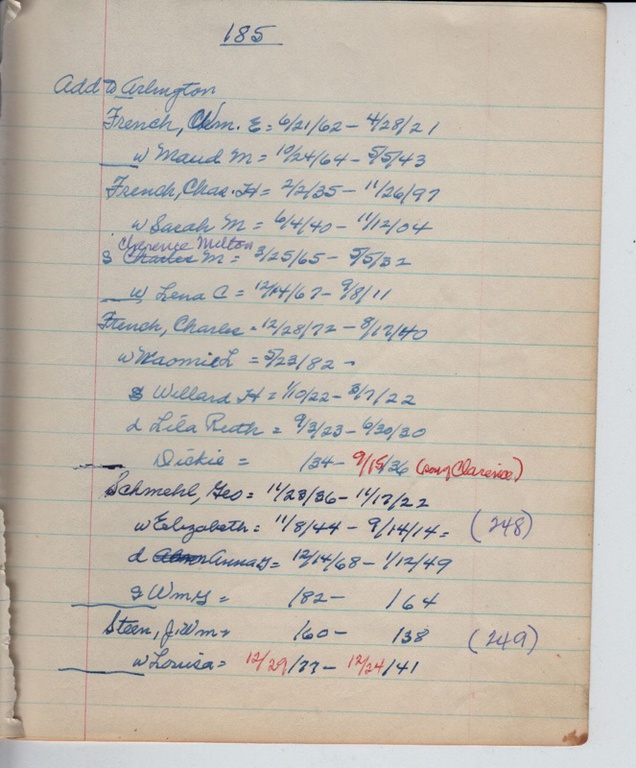 185
Add to Arlington
French, Wm. E = 6/21/62 - 4/28/21
w Maud M = 10/24/64 - 5/5/43
French, Chas. H = 2/2/35 - 11/26/97
w Sarah M = 6/4/40 - 11/12/04
Clarence Milton
s Charles M = 3/25/65 - 5/5/32
w Lena C = 12/14/67 - 9/8/11
French, Charles = 12/28/72 - 8/17/40
w Naomi L = 5/23/82 -
s Willard H = 1/10/22 - 3/7/22
d Lila Ruth = 9/3/23 - 6/30/30
Dickie = /34 - 9/15/36 (son of Clarence)
Schmehl, Geo = 11/23/36 - 11/17/22
w Elizabeth = 11/8/44 - 9/14/14 = (248)
d Anna G = 12/14/68 - 1/12/49
s Wm G = /82 - /64
Steen, J. Wm = /60 - /38 (249)
w Louisa = 12/29/77 - 12/24/41